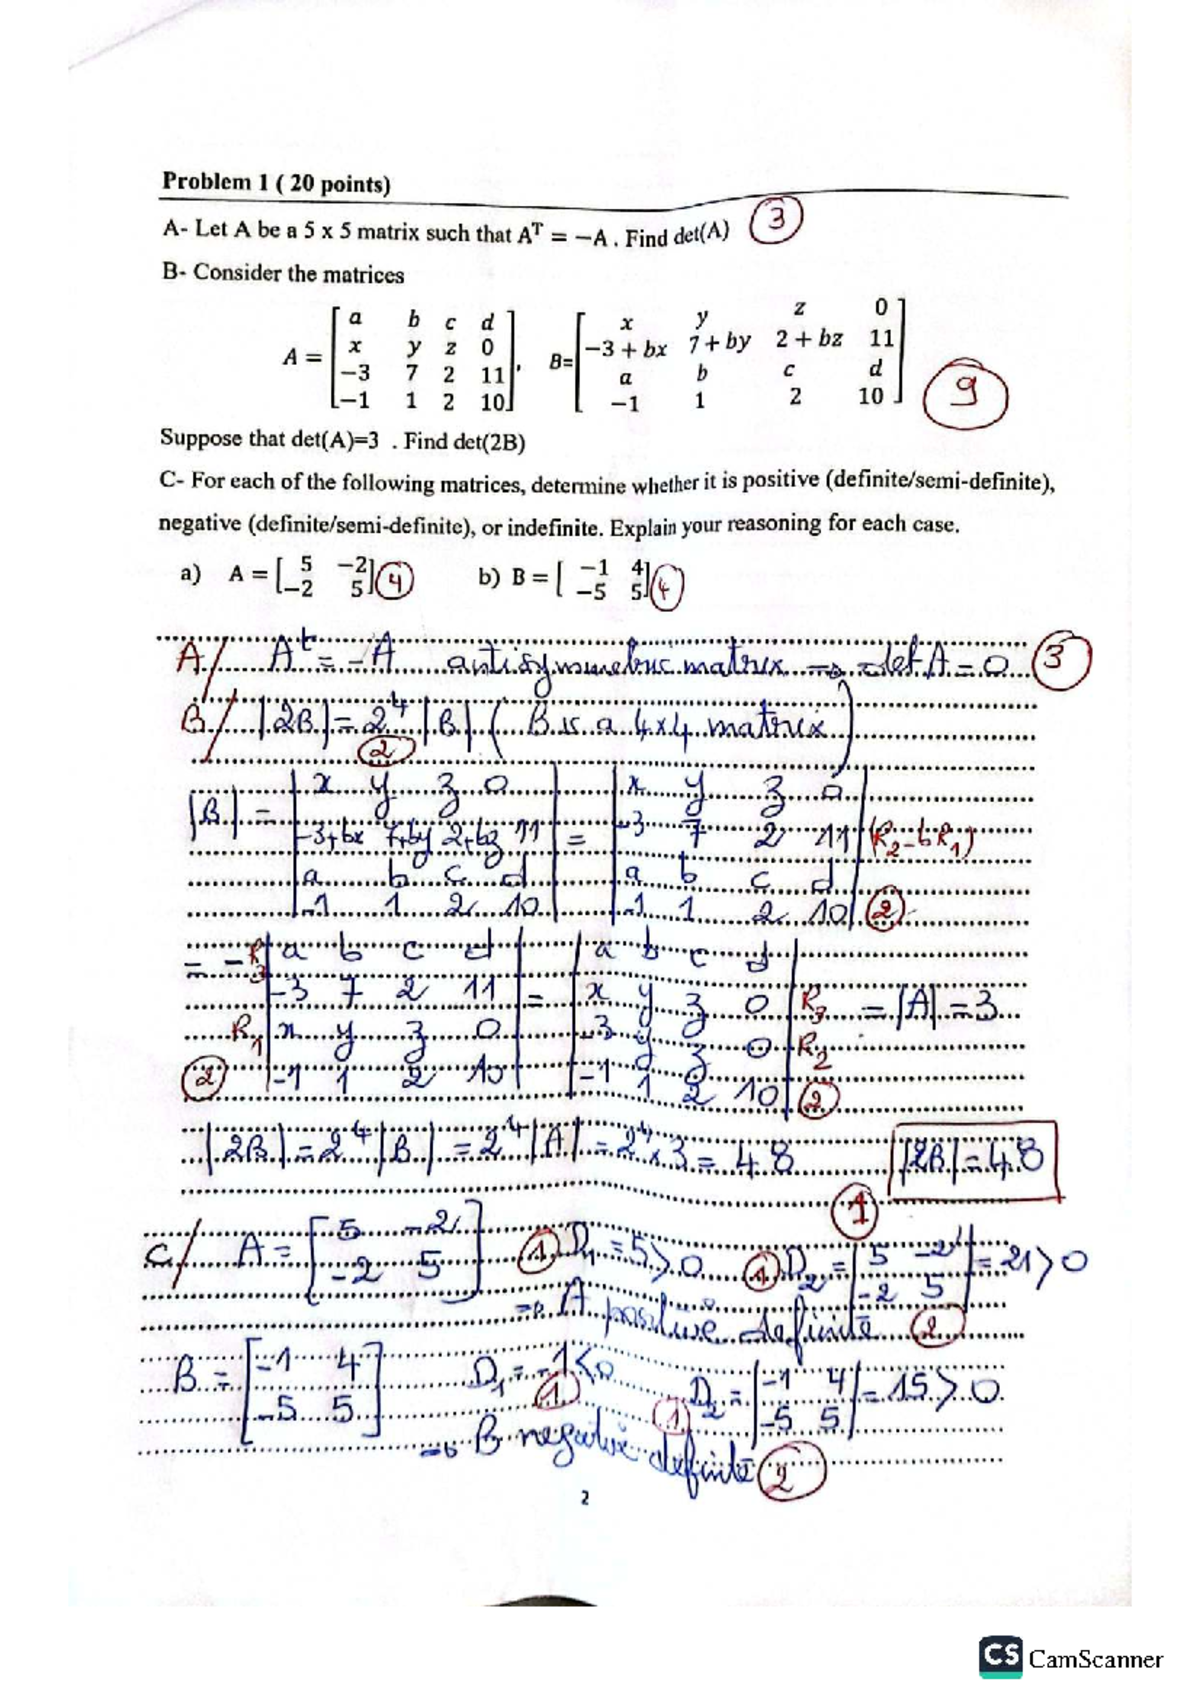 Problem 1 ( 20 points)
A- Let A be a 5 x 5 matrix such that Aᵀ = −A . Find det(A) 3
B- Consider the matrices
A = [ a b c d
x y z 0
−3 7 2 11
−1 1 2 10 ],
B= [ x y z 0
−3 + bx 7 + by 2 + bz 11
a b c d
−1 1 2 10 ] 9
Suppose that det(A)=3 . Find det(2B)
C- For each of the following matrices, determine whether it is positive (definite/semi-definite),
negative (definite/semi-definite), or indefinite. Explain your reasoning for each case.
a) A = [ 5 −2
−2 5 ] 4
b) B = [ −1 4
−5 5 ] 4
A/ Aᵗ = -A antisymmetric matrix ⇒ det A = 0 3
B/ |2B| = 2⁴ |B| ( B is a 4x4 matrix )
2
|B| = | x y z 0
-3+bx 7+by 2+bz 11
a b c d
-1 1 2 10 |
= | x y z 0
-3 7 2 11 | (R₂-bR₁)
a b c d
-1 1 2 10 | 2
= - R₃ | a b c d
-3 7 2 11
R₁ x y z 0
2 -1 1 2 10 |
= | a b c d
x y z 0 | R₃ = |A| = 3
-3 y z 0 | R₂
-1 1 2 10 | 2
|2B| = 2⁴ |B| = 2⁴ |A| = 2⁴ x 3 = 48 |2B| = 48
1
C/ A = [ 5 -2
-2 5 ]
1 D₁ = 5 > 0 1 D₂ = | 5 -2
-2 5 | = 21 > 0
⇒ A positive definite 2
B = [ -1 4
-5 5 ]
D₁ = -1 < 0 1
D₂ = | -1 4
-5 5 | = 15 > 0
1
⇒ B negative definite 2
2
CS CamScanner